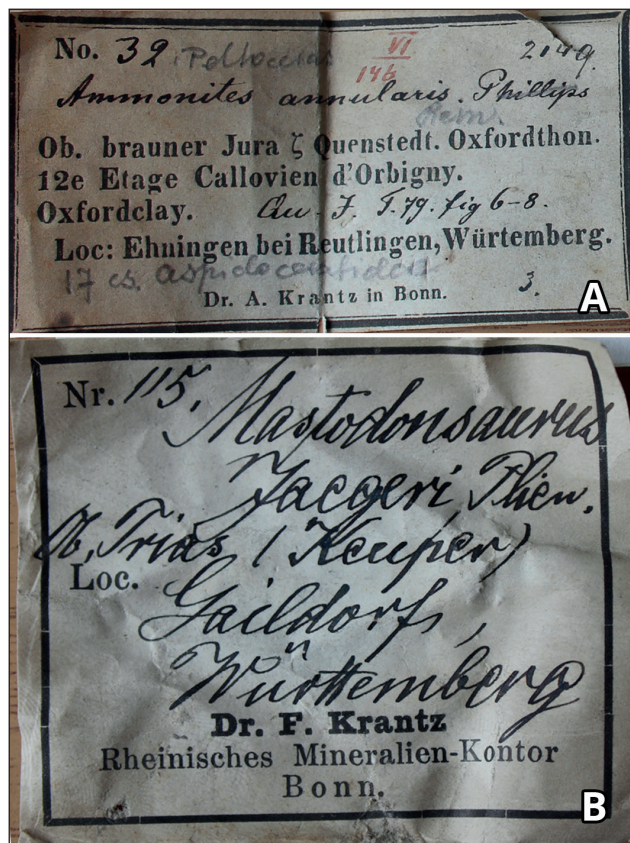 No. 32. Peltoceras VI 2149.
146
Ammonites annularis. Phillips
Rein.
Ob. brauner Jura ζ Quenstedt. Oxfordthon.
12e Etage Callovien d'Orbigny.
Oxfordclay. Qu. J. T. 79. fig 6-8.
Loc: Ehningen bei Reutlingen, Würtemberg.
17 cs.
Dr. A. Krantz in Bonn. 3.
A
Nr. 115. Mastodonsaurus
Jaegeri Plien.
Ob. Trias (Keuper)
Loc.
Gaildorf,
Württemberg
Dr. F. Krantz
Rheinisches Mineralien-Kontor
Bonn.
B